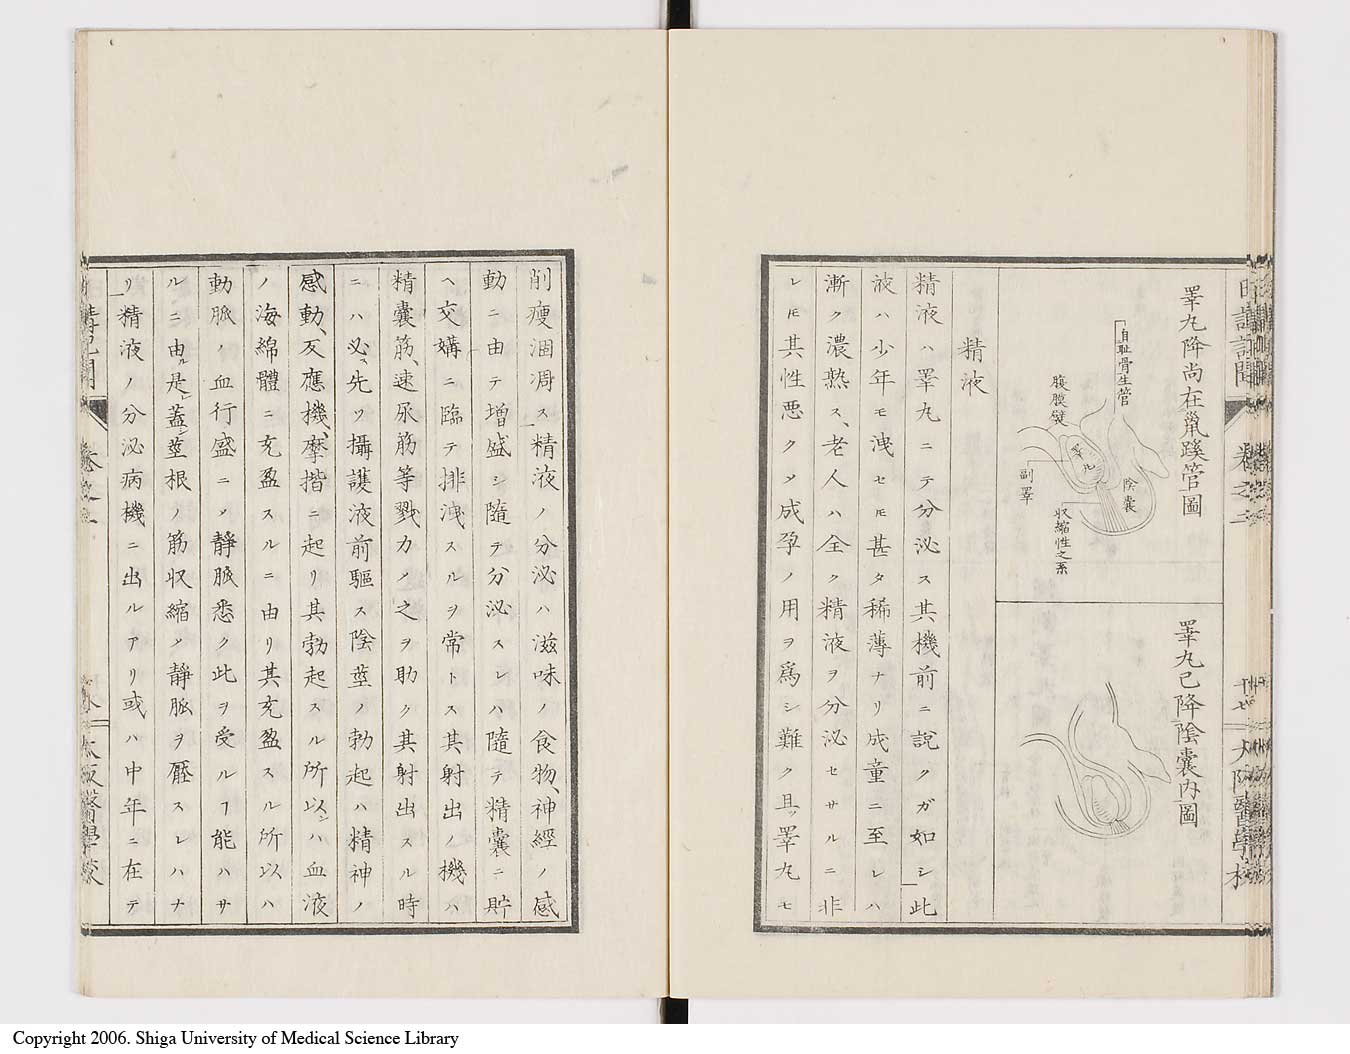 睾丸降尚在鼠蹊管圖
自耻骨生管
腹膜襞
睾丸
副睾
陰嚢
収縮性之系
睾丸已降陰囊内圖
精液
精液ハ睾丸ニテ分泌ス其機前ニ説クガ如シ此
液ハ少年モ洩セㇳモ甚タ稀薄ナリ成童ニ至レハ
漸ク濃熟ス、老人ハ全ク精液ヲ分泌セサルニ非
レㇳモ其性悪クメ成孕ノ用ヲ爲シ難ク且ッ睾丸モ
削瘦涸凋ス精液ノ分泌ハ滋味ノ食物、神經ノ感
動ニ由テ增盛シ隨テ分泌スレハ隨テ精囊ニ貯
ヘ交媾ニ臨テ排洩スルヲ常トス其射出ノ機ハ
精囊筋、速尿筋等戮力メ之ヲ助ク其射出スル時
ニハ必ス先ツ攝護液前驅ス陰莖ノ勃起ハ精神ノ
感動、反應機、摩揩ニ起リ其勃起スル所以ンハ血液
ノ海綿體ニ充盈スルニ由リ其充盈スル所以ハ
動脈ノ血行盛ニメ靜脈悉ク此ヲ受ルヿ能ハサ
ルニ由ル是レ蓋シ莖根ノ筋収縮メ靜脈ヲ壓スレハナ
リ精液ノ分泌病機ニ出ルアリ或ハ中年ニ在テ
日講記聞
卷之二
大阪醫學校
Copyright 2006. Shiga University of Medical Science Library